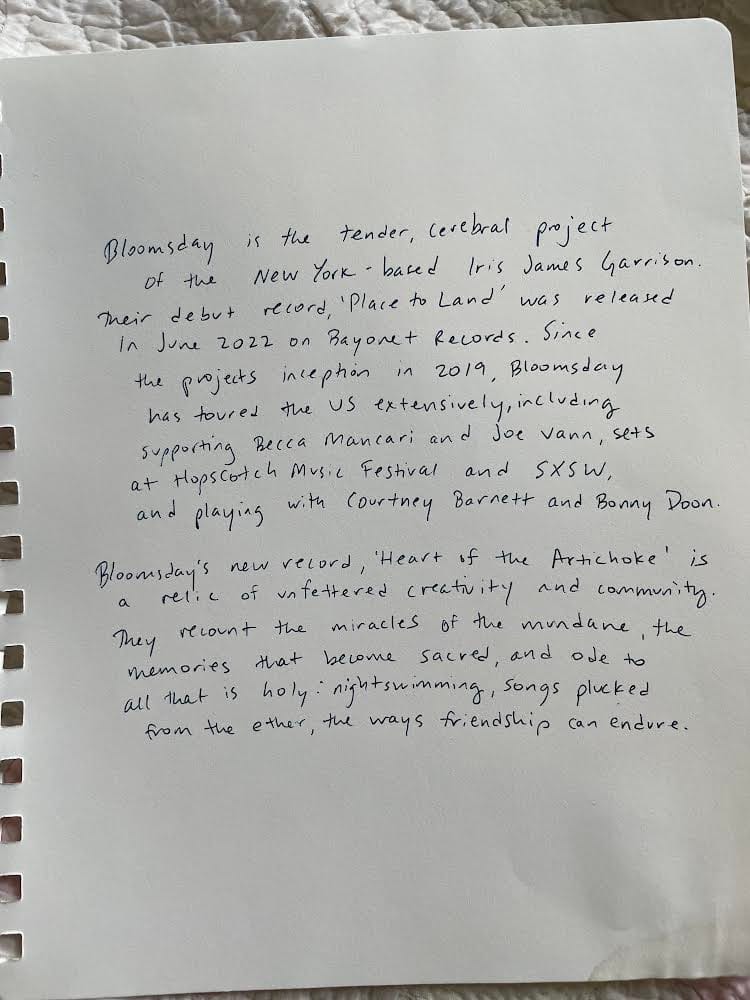 Bloomsday is the tender, cerebral project
of the New York-based Iris James Garrison.
Their debut record, 'Place to Land' was released
in June 2022 on Bayonet Records. Since
the projects inception in 2019, Bloomsday
has toured the US extensively, including
supporting Becca Mancari and Joe Vann, sets
at Hopscotch Music Festival and SXSW,
and playing with Courtney Barnett and Bonny Doon.
Bloomsday's new record, 'Heart of the Artichoke' is
a relic of unfettered creativity and community.
They recount the miracles of the mundane, the
memories that become sacred, and ode to
all that is holy: nightswimming, songs plucked
from the ether, the ways friendship can endure.